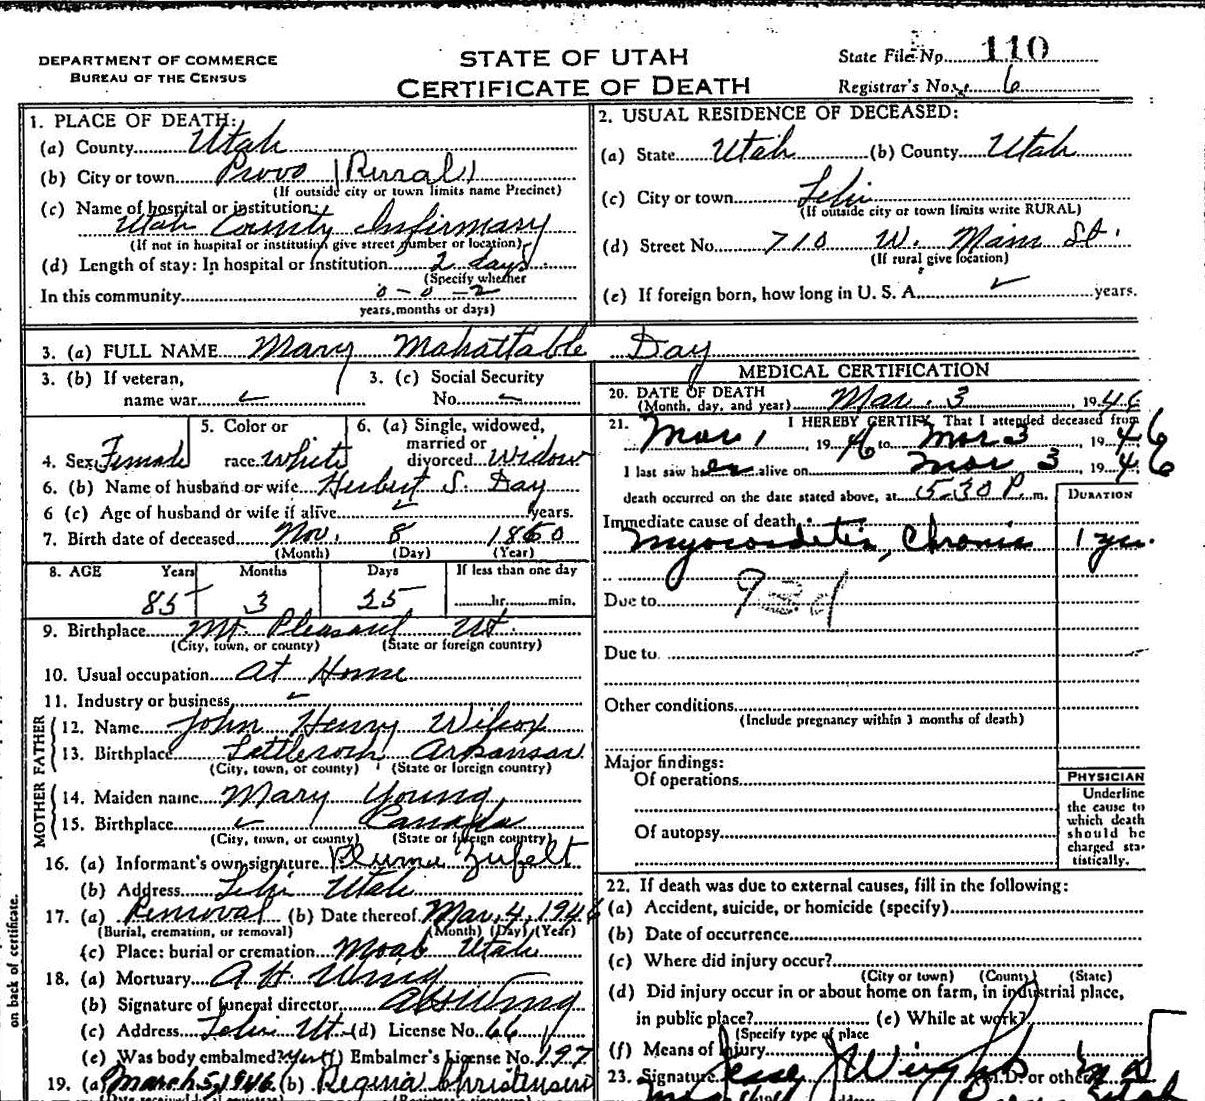 DEPARTMENT OF COMMERCE
BUREAU OF THE CENSUS
STATE OF UTAH
CERTIFICATE OF DEATH
State File No. 110
Registrar's No. 6
1. PLACE OF DEATH:
(a) County Utah
(b) City or town Provo (Rural)
(If outside city or town limits name Precinct)
(c) Name of hospital or institution:
Utah County Infirmary
(If not in hospital or institution give street number or location)
(d) Length of stay: In hospital or institution 2 days
(Specify whether
In this community 0-0-2
years, months or days)
2. USUAL RESIDENCE OF DECEASED:
(a) State Utah (b) County Utah
(c) City or town Lehi
(If outside city or town limits write RURAL)
(d) Street No. 710 W. Main St.
(If rural give location)
(e) If foreign born, how long in U. S. A. ✓ years.
3. (a) FULL NAME Mary Mahattable Day
3. (b) If veteran, name war ✓
3. (c) Social Security No. ✓
4. Sex Female
5. Color or race White
6. (a) Single, widowed, married or divorced Widow
6. (b) Name of husband or wife Herbert S. Day
6 (c) Age of husband or wife if alive ✓ years.
7. Birth date of deceased Nov. 8 1860
(Month) (Day) (Year)
8. AGE Years Months Days If less than one day
85 3 25 hr. min.
9. Birthplace Mt. Pleasant Ut.
(City, town, or county) (State or foreign country)
10. Usual occupation At Home
11. Industry or business ✓
FATHER
12. Name John Henry Wilcox
13. Birthplace Littlerock Arkansas
(City, town, or county) (State or foreign country)
MOTHER
14. Maiden name Mary Young
15. Birthplace ✓ Canada
(City, town, or county) (State or foreign country)
16. (a) Informant's own signature Zufelt
(b) Address Lehi Utah
17. (a) Removal (b) Date thereof Mar. 4, 1946
(Burial, cremation, or removal) (Month) (Day) (Year)
(c) Place: burial or cremation Moab Utah
18. (a) Mortuary A. H. Wing
(b) Signature of funeral director
(c) Address Lehi Ut. (d) License No. 66
(e) Was body embalmed? Yes (f) Embalmer's License No. 197
19. (a) March 5, 1946 (b) Regina Christensen
on back of certificate.
MEDICAL CERTIFICATION
20. DATE OF DEATH
(Month, day, and year) Mar. 3, 1946
21. I HEREBY CERTIFY, That I attended deceased from
Mar 1, 1946 to Mar 3, 1946
I last saw her alive on Mar 3 1946
death occurred on the date stated above, at 5:30 P. m.
DURATION
Immediate cause of death
Myocarditis, Chronic 1 yr.
Due to 93d
Due to
Other conditions
(Include pregnancy within 3 months of death)
Major findings:
Of operations
Of autopsy
PHYSICIAN
Underline
the cause to
which death
should be
charged sta-
tistically.
22. If death was due to external causes, fill in the following:
(a) Accident, suicide, or homicide (specify)
(b) Date of occurrence
(c) Where did injury occur?
(City or town) (County) (State)
(d) Did injury occur in or about home on farm, in industrial place,
in public place? (e) While at work?
(Specify type of place
(f) Means of Injury
23. Signature M.D. or other